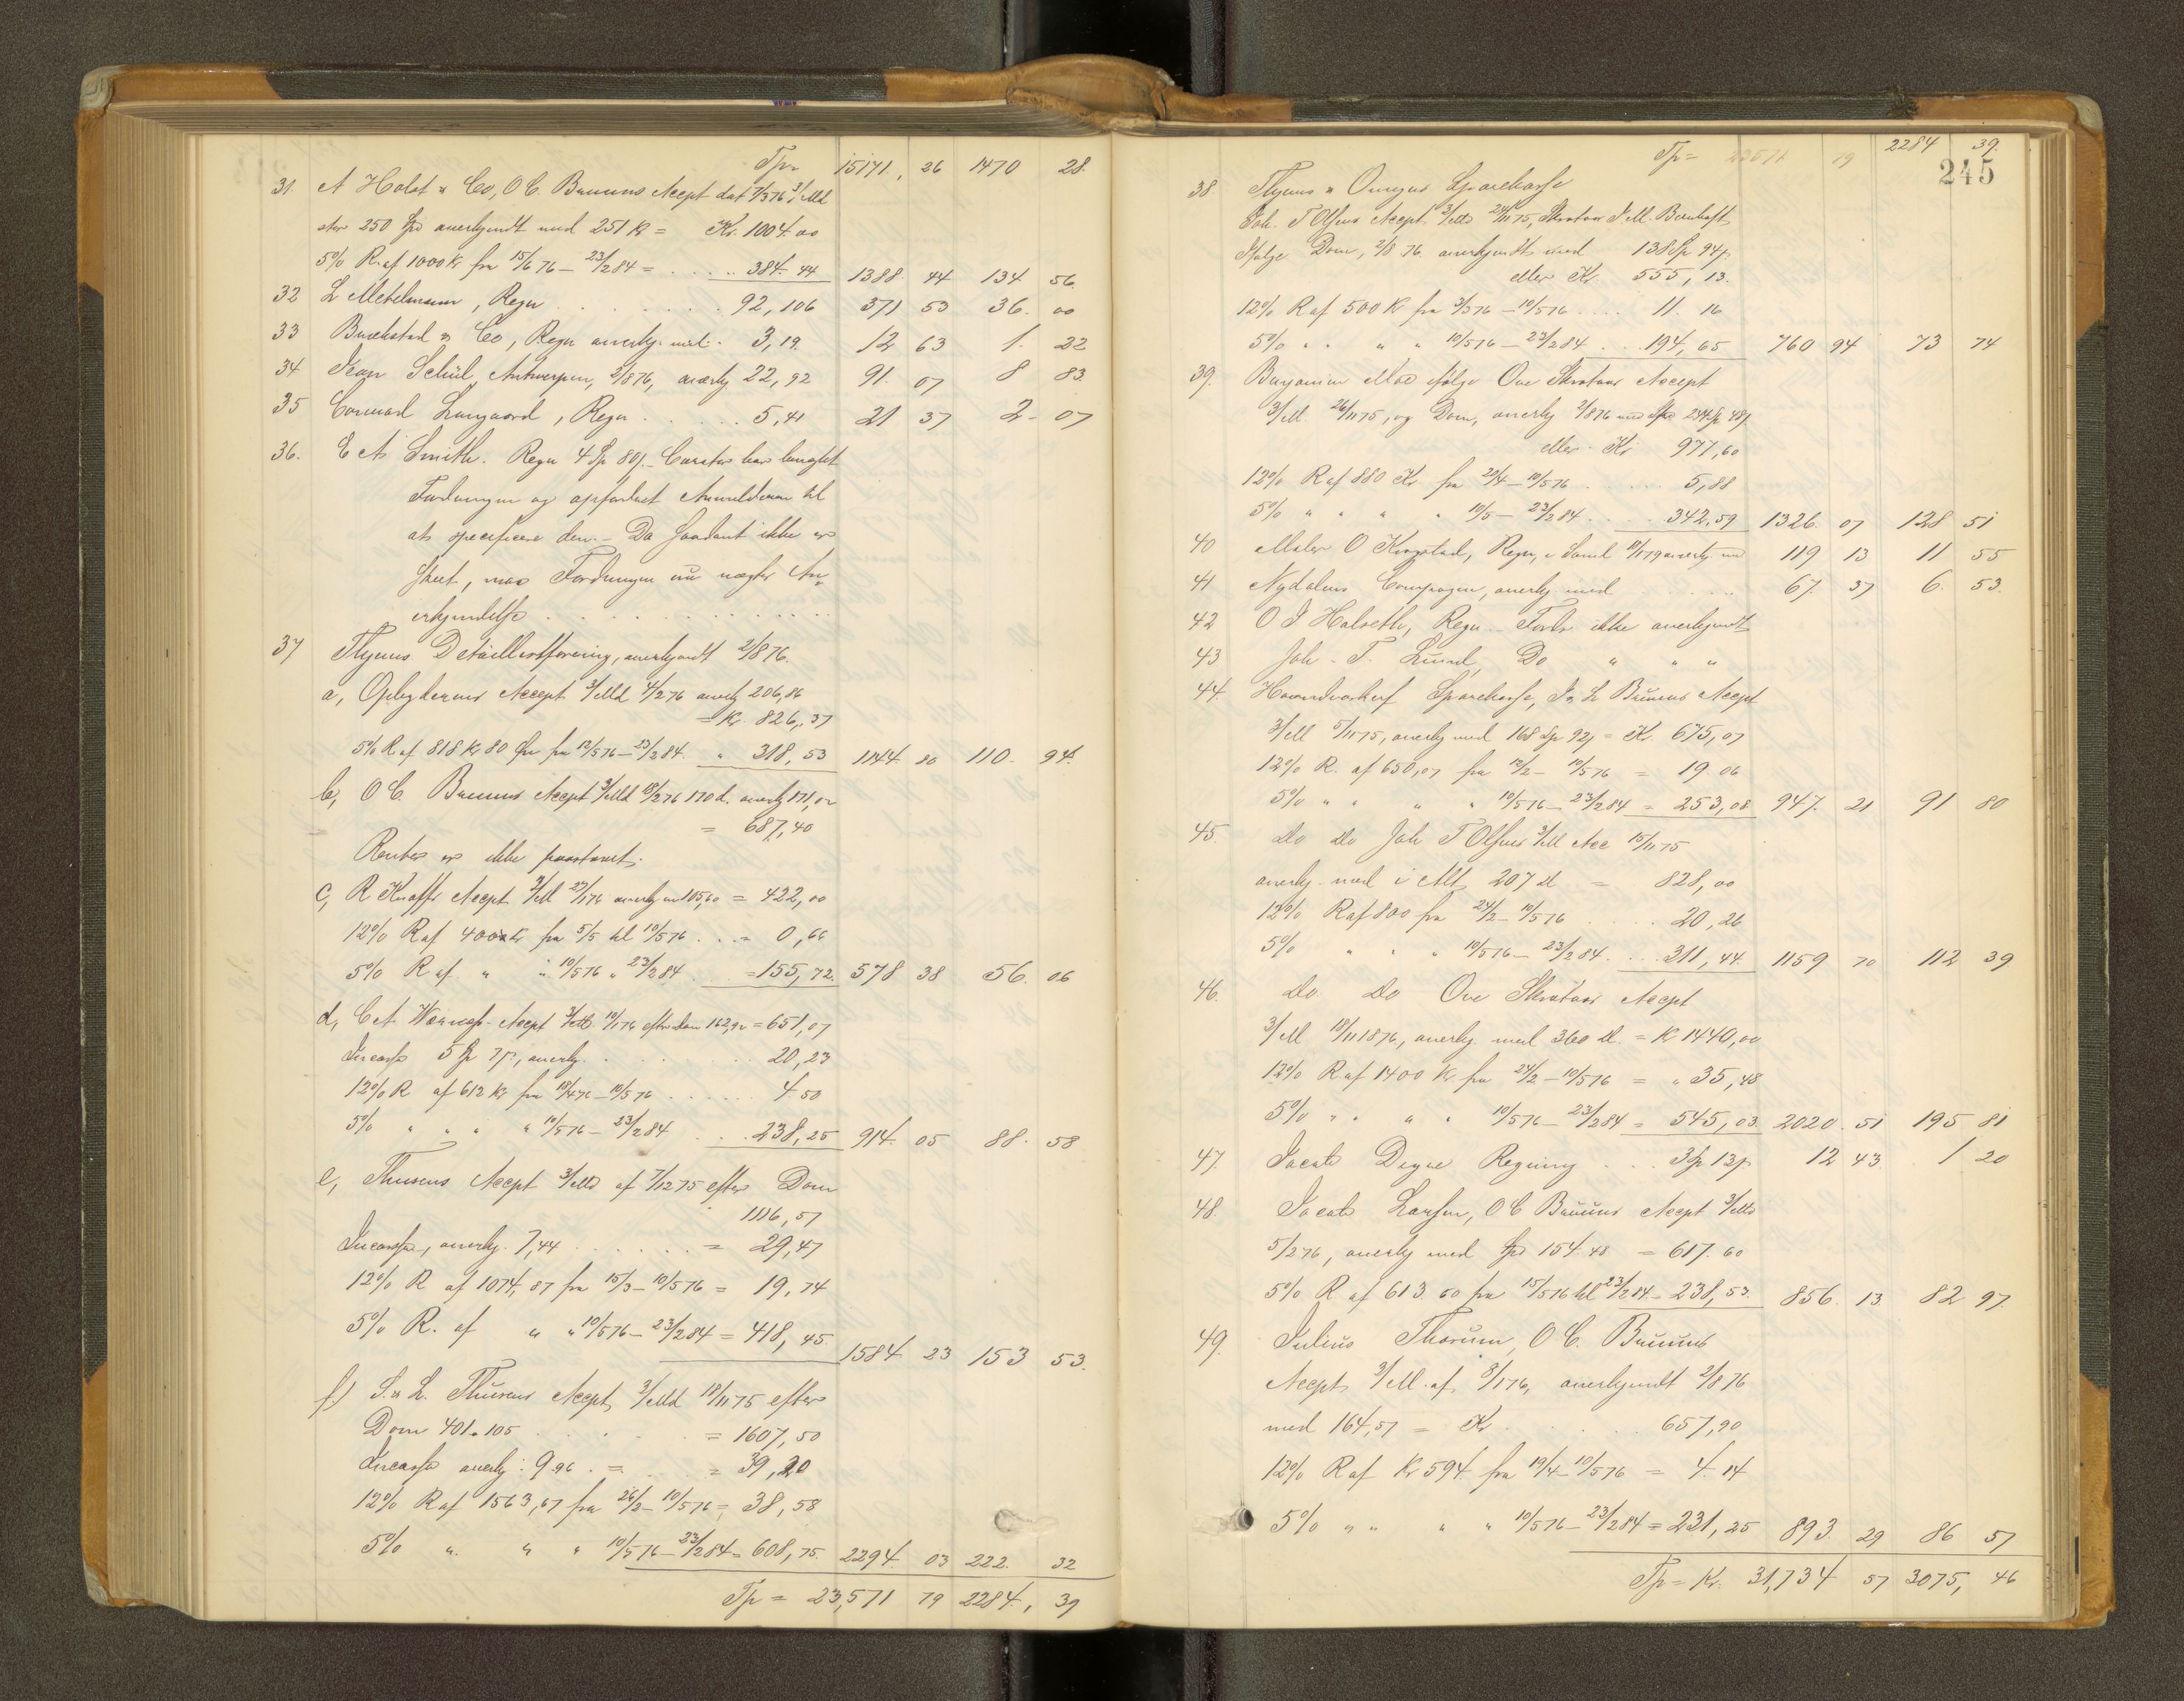 Tpr 15171, 26 1470 28.
31. A Holst & Co, O C. Bruuns Accept dat 7/3 76 3/Md
stor 250 Spd anerkjendt med 251 k = Kr. 1004.00
5% R. af 1000 Kr fra 15/6 76 – 23/2 84 = . . . . 384. 44 1388. 44 134 56.
32 L Metelmann, Regn . . . . . 92, 106 371 53 36. 00
33 Buchstad & Co, Regn anerkj. med. 3, 19. 12 63 1. 22
34 Jean Schül, Antwerpen, 2/8 76, anerkj 22, 92 91. 07 8 83.
35 Conrad Langaard, Regn . . . . . 5, 41 21 37 2 - 07
36. E A Smith. Regn 4 Sp 80 s. – Curator har benægtet
Fordringen og opfordret Anmelderen til
at specificere den. – Da Saadant ikke er
skeet, maa Fordringen nu nægtes An„
erkjendelse . . . . . . . . . .
37 Thjems Detaillistforening, anerkjendt 2/8 76.
a, Opbyderens Accept 3/Md 4/2 76 anerkj 206,86
= Kr. 826, 37
5% R af 818 Kr 80 fra 12/5 76 – 23/2 84. „ 318, 53 1144 80 110. 94.
b, O C. Bruuns Accept 3/Md 18/2 76 170 d. anerkj 171,02
= 687, 40
Renter er ikke paastaaet.
c, R Knoffs Accept 3/Md 27/1 76 anerkj m 105,60 = 422, 00
12% R af 400 Kr fra 5/5 til 10/5 76 . . = 0, 66
5% R af „ „ 10/5 76 „ 23/2 84 . . = 155, 72. 578 38 56. 06
d, C A Accept 3/Md 10/1 76 efter Dom 162,92 = 651, 07
Incasso 5 Sp 7 s., anerkj. . . . . 20, 23
12% R af 612 Kr fra 18/4 76 – 10/5 76 . . . . . 4 50
5% „ „ „ „ 10/5 76 – 23/2 84 . . . 238, 25 914. 05 88. 58
e, Thuesens Accept 3/Md af 7/12 75 efter Dom
1116, 57
Incasso, anerkj. 7, 44 . . . . . = 29, 47
12% R af 1074, 87 fra 15/3 – 10/5 76 = 19, 74
5% R. af „ „ 10/5 76 – 23/2 84 = 418, 45. 1584. 23 153 53.
f.) S. & L. Thuesens Accept 3/Md 18/11 75 efter
Dom 401. 105 . . . . = 1607, 50
Incasso anerkj: 9.96 . = . . = 39, 20
12% R af 1563, 67 fra 26/2 – 10/5 76 = 38, 58
5% „ „ „ 10/5 76 – 23/2 84 = 608, 75. 2294. 03 222. 32
Tp = 23,571 79 2284, 39
Tp = 23571 79 2284 39.
245
38. Thjems & Omegns Sparekasse
Joh. T Olsens Accept. 3/Md 24/11 75,
Ifølge Dom, 2/8 76 anerkjendt med 138 Sp 94 s
eller Kr 555, 13.
12% R af 500 K fra 3/5 76 – 10/5 76 . . . . 11. 16
5% „ „ „ „ 10/5 76 – 23/2 84 . . 194, 65 760 94 73 74
39. Benjamin Moe ifølge Ove Accept
3/Md 26/11 75, og Dom, anerkj 2/8 76 med Spd 244 Sp 48 s
eller Kr 977, 60
12% R af 880 Kr fra 20/4 – 10/5 76 . . . . . 5, 88
5% „ „ „ „ 10/5 – 23/2 84 . . . 342, 59 1326. 07 128 51
40 Maler O Krogstad, Regn, i Saml 11/1 79 anerkj. m 119 13 11 55
41 Nydalens Compagni, anerkj med . . . . 67. 37 6. 53.
42 O J Halseth, Regn. Fordr. ikke anerkjendt
43 Joh. T. Lund, Do „ „ „
44. Sparekasse, J. L Bruuns Accept
3/Md 5/11 75, anerkj med 168 Sp 92 s = Kr. 675, 07
12% R. af 650, 07 fra 12/2 – 10/5 76 = 19. 06
5% „ „ „ „ 10/5 76 – 23/2 84 = 253, 08. 947. 21 91 80
45. Do Do Joh T Olsens 3/Md Acc 15/11 75
anerkj. med i Alt 207 d = 828, 00
12% R af 800 fra 24/2 – 10/5 76 . . . . 20, 26
5% „ „ „ 10/5 76 – 23/2 84. . . . 311, 44. 1159 70 112 39
46. Do. Do Ove Accept
3/Md 18/11 1876, anerkj med 360 d. = K 1440, 00
12% R af 1400 Kr fra 24/2 – 10/5 76 = „ 35, 48
5% „ „ „ „ 10/5 76 – 23/2 84 = 545, 03. 2020. 51 195 81
47. Jacob Digre Regning . . . 3 Sp 13 s. 12 43. 1 20
48. Jacob Larsen, O C Bruuns Accept 3/Md
5/2 76, anerkj med Spd 154. 48 = 617. 60
5% R af 613. 60 fra 15/5 76 til 23/2 84 – 238, 53. 856. 13. 82 97.
49. Julius Thorum, O C. Bruuns
Accept 3/Md. af 8/1 76, anerkjendt 2/8 76
med 164, 57 = Kr . . . . 657, 90
12% R af Kr 594 fra 19/4 – 10/5 76 = 4. 14
5% „ „ „ „ 10/5 76 – 23/2 84 = 231, 25 893. 29 86 57
Tp = Kr. 31,734 57 3075, 46